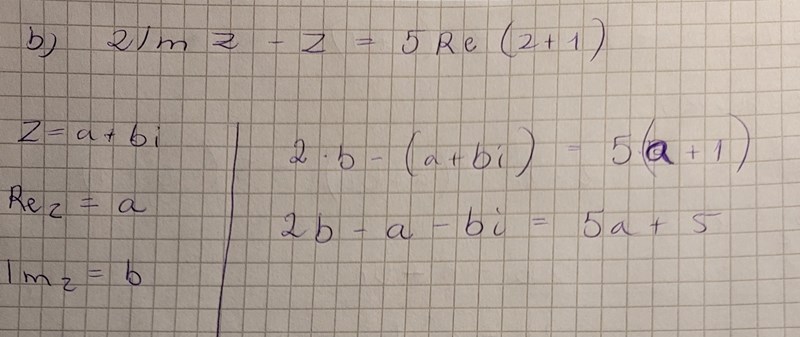 b) 2 Im z - z = 5 Re (z+1)
z = a + bi
Re z = a
Im z = b
2·b - (a+bi) = 5(a+1)
2b - a - bi = 5a + 5